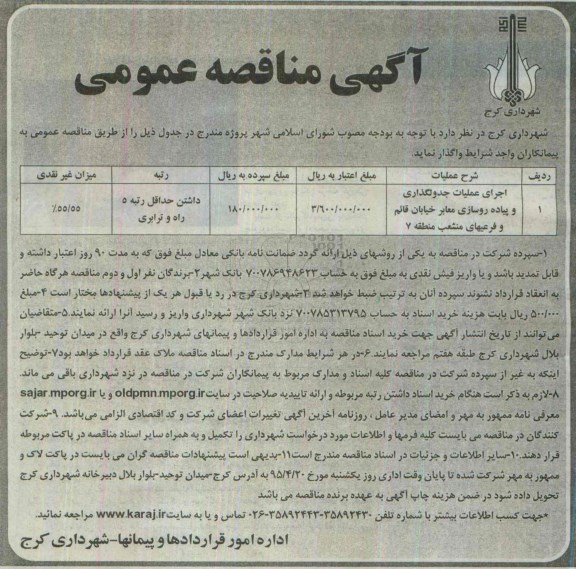 شهرداری کرج
آگهی مناقصه عمومی
شهرداری کرج در نظر دارد با توجه به بودجه مصوب شورای اسلامی شهر پروژه مندرج در جدول ذیل را از طریق مناقصه عمومی به
پیمانکاران واجد شرایط واگذار نماید.
ردیف شرح عملیات مبلغ اعتبار به ریال مبلغ سپرده به ریال رتبه میزان غیر نقدی
۱ اجرای عملیات جدولگذاری و پیاده روسازی معابر خیابان قائم و فرعیهای منشعب منطقه ۷ ۳/۶۰۰/۰۰۰/۰۰۰ ۱۸۰/۰۰۰/۰۰۰ داشتن حداقل رتبه ۵ راه و ترابری ٪۵۵/۵۵
۱-سپرده شرکت در مناقصه به یکی از روشهای ذیل ارائه گردد ضمانت نامه بانکی معادل مبلغ فوق که به مدت ۹۰ روز اعتبار داشته و
قابل تمدید باشد و یا واریز فیش نقدی به مبلغ فوق به حساب ۷۰۰۷۸۶۹۴۸۶۲۳ بانک شهر۲-برندگان نفر اول و دوم مناقصه هرگاه حاضر
به انعقاد قرارداد نشوند سپرده آنان به ترتیب ضبط خواهد شد ۳-شهرداری کرج در رد یا قبول هر یک از پیشنهادها مختار است ۴-مبلغ
۵۰۰/۰۰۰ ریال بابت هزینه خرید اسناد به حساب ۷۰۰۷۸۵۳۱۳۷۹۵ نزد بانک شهر شهرداری واریز و رسید آنرا ارائه نمایند.۵-متقاضیان
می‌توانند از تاریخ انتشار آگهی جهت خرید اسناد مناقصه به اداره امور قراردادها و پیمانهای شهرداری کرج واقع در میدان توحید -بلوار
بلال شهرداری کرج طبقه هفتم مراجعه نمایند.۶-در هر شرایط مدارک مندرج در اسناد مناقصه ملاک عقد قرارداد خواهد بود۷-توضیح
اینکه به غیر از سپرده شرکت در مناقصه کلیه اسناد و مدارک مربوط به پیمانکاران شرکت در مناقصه در نزد شهرداری باقی می ماند.
۸-لازم به ذکر است هنگام خرید اسناد داشتن رتبه مربوطه و ارائه تاییدیه صلاحیت در سایت oldpmn.mporg.ir و یا sajar.mporg.ir
معرفی نامه ممهور به مهر و امضای مدیر عامل ، روزنامه آخرین آگهی تغییرات اعضای شرکت و کد اقتصادی الزامی می‌باشد. ۹-شرکت
کنندگان در مناقصه می بایست کلیه فرمها و اطلاعات مورد درخواست شهرداری را تکمیل و به همراه سایر اسناد مناقصه در پاکت مربوطه
قرار دهند.۱۰-سایر اطلاعات و جزئیات در اسناد مناقصه مندرج است۱۱-بدیهی است پیشنهادات مناقصه گران می بایست در پاکت لاک و
ممهور به مهر شرکت شده تا پایان وقت اداری روز یکشنبه مورخ ۹۵/۴/۲۰ به آدرس کرج-میدان توحید-بلوار بلال دبیرخانه شهرداری کرج
تحویل داده شود در ضمن هزینه چاپ آگهی به عهده برنده مناقصه می باشد
*جهت کسب اطلاعات بیشتر با شماره تلفن ۳۵۸۹۲۴۳۰-۳۵۸۹۲۴۴۳-۰۲۶ تماس و یا به سایت www.karaj.ir مراجعه نمائید.
اداره امور قراردادها و پیمانها-شهرداری کرج